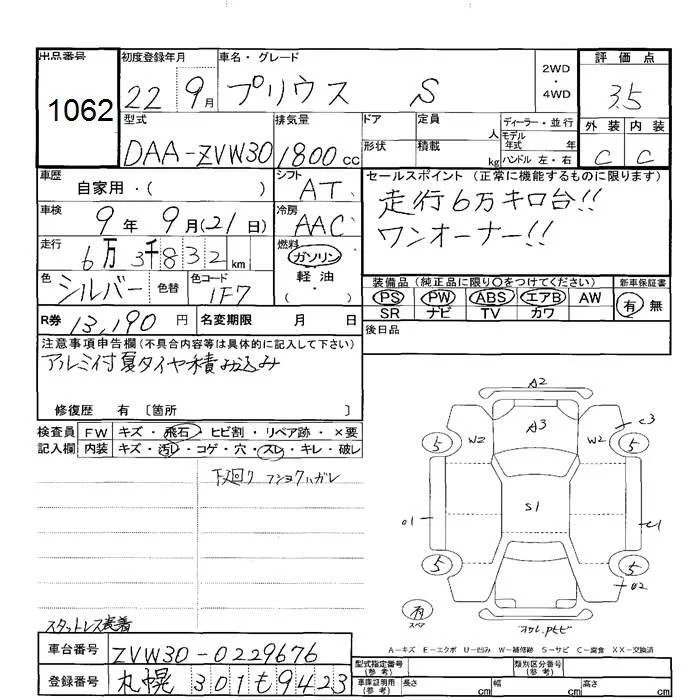 出品番号 初度登録年月 車名・グレード 2WD・4WD 評価点
1062 22 9月 プリウス S 3.5
型式 排気量 ドア 定員 人 ディーラー・並行 外装 内装
DAA-ZVW30 1800cc 形状 積載 kg モデル年式 年 ハンドル 左・右 C C
車歴 自家用・( ) シフト AT セールスポイント (正常に機能するものに限ります)
車検 9年9月(21日) 冷房 AAC 走行6万キロ台!!
走行 6万3千832km 燃料 ガソリン 軽油 ( ) ワンオーナー!!
色 シルバー 色替 色コード 1F7 装備品 (純正品に限り○をつけてください) 新車保証書
PS PW ABS エアB AW 有 無
R券 13,190円 名変期限 月 日 SR ナビ TV カワ
後日品
注意事項申告欄(不具合内容等は具体的に記入して下さい)
アルミ付夏タイヤ積み込み
修復歴 有 〔箇所 〕
検査員 FW キズ・飛石・ヒビ割・リペア跡・×要
記入欄 内装 キズ・汚レ・コゲ・穴・スレ・キレ・破レ
A2
C3
W2 A3 W2
5 5
S1
U1
5 5
U2
有
スペア
A-キズ E-エクボ U-凹み W-補修跡 S-サビ C-腐食 XX-交換済
スタットレス装着
車台番号 ZVW30-0229676 型式指定番号(参考) 類別区分番号(参考)
登録番号 札幌 301 も 9423 車庫証明用(参考) 長さ cm 幅 cm 高さ cm